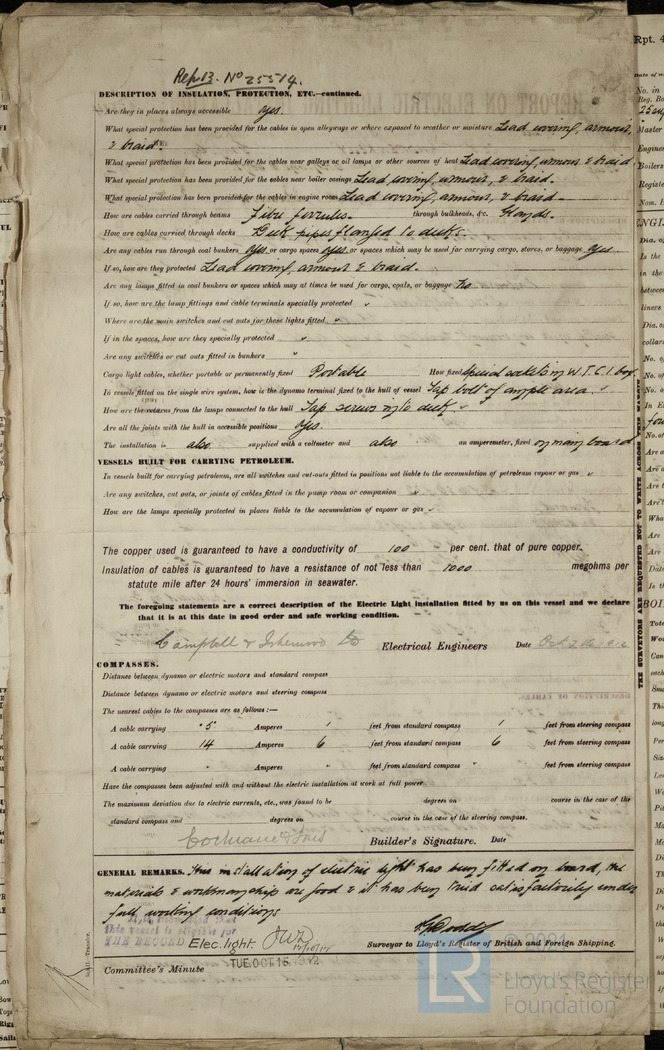 Rep 13. No 25514.
DESCRIPTION OF INSULATION, PROTECTION, ETC.—continued.
Are they in places always accessible yes.
What special protection has been provided for the cables in open alleyways or where exposed to weather or moisture Lead covering, armour,
& braid.
What special protection has been provided for the cables near galleys or oil lamps or other sources of heat Lead covering, armour & braid
What special protection has been provided for the cables near boiler casings Lead covering, armour, & braid.
What special protection has been provided for the cables in engine room Lead covering, armour, & braid.
How are cables carried through beams Fibre ferrules. through bulkheads, &c. Glands.
How are cables carried through decks Deck pipes flanged to decks.
Are any cables run through coal bunkers yes or cargo spaces yes or spaces which may be used for carrying cargo, stores, or baggage yes
If so, how are they protected Lead covering, armour & braid.
Are any lamps fitted in coal bunkers or spaces which may at times be used for cargo, coals, or baggage No
If so, how are the lamp fittings and cable terminals specially protected "
Where are the main switches and cut outs for these lights fitted "
If in the spaces, how are they specially protected "
Are any switches or cut outs fitted in bunkers "
Cargo light cables, whether portable or permanently fixed Portable How fixed special sockets in W.T.C.I. box
In vessels fitted on the single wire system, how is the dynamo terminal fixed to the hull of vessel Tap bolt of ample area. "
How are the returns from the lamps connected to the hull Tap screws into deck. "
Are all the joints with the hull in accessible positions yes.
The installation is also supplied with a voltmeter and also an amperemeter, fixed on main board
VESSELS BUILT FOR CARRYING PETROLEUM.
In vessels built for carrying petroleum, are all switches and cut-outs fitted in positions not liable to the accumulation of petroleum vapour or gas "
Are any switches, cut outs, or joints of cables fitted in the pump room or companion "
How are the lamps specially protected in places liable to the accumulation of vapour or gas "
The copper used is guaranteed to have a conductivity of 100 per cent. that of pure copper.
Insulation of cables is guaranteed to have a resistance of not less than 1000 megohms per
statute mile after 24 hours' immersion in seawater.
The foregoing statements are a correct description of the Electric Light installation fitted by us on this vessel and we declare
that it is at this date in good order and safe working condition.
Campbell & Isherwood Ld Electrical Engineers Date Oct
COMPASSES.
Distance between dynamo or electric motors and standard compass
Distance between dynamo or electric motors and steering compass
The nearest cables to the compasses are as follows:—
A cable carrying .5 Amperes 1 feet from standard compass 1 feet from steering compass
A cable carrying 14 Amperes 6 feet from standard compass 6 feet from steering compass
A cable carrying " Amperes " feet from standard compass " feet from steering compass
Have the compasses been adjusted with and without the electric installation at work at full power
The maximum deviation due to electric currents, etc., was found to be degrees on course in the case of the
standard compass and degrees on course in the case of the steering compass.
Cochrane & Sons Builder's Signature. Date
GENERAL REMARKS. This installation of electric light has been fitted on board, the
materials & workmanship are good & it has been tried satisfactorily under
full working conditions
this vessel is eligible for
THE RECORD Elec. light. JWD
Surveyor to Lloyd's Register of British and Foreign Shipping.
Committee's Minute TUE. OCT 15 1912
THE SURVEYORS ARE REQUESTED NOT TO WRITE ACROSS THIS MARGIN
© 2021
LR
Lloyd's Register
Foundation